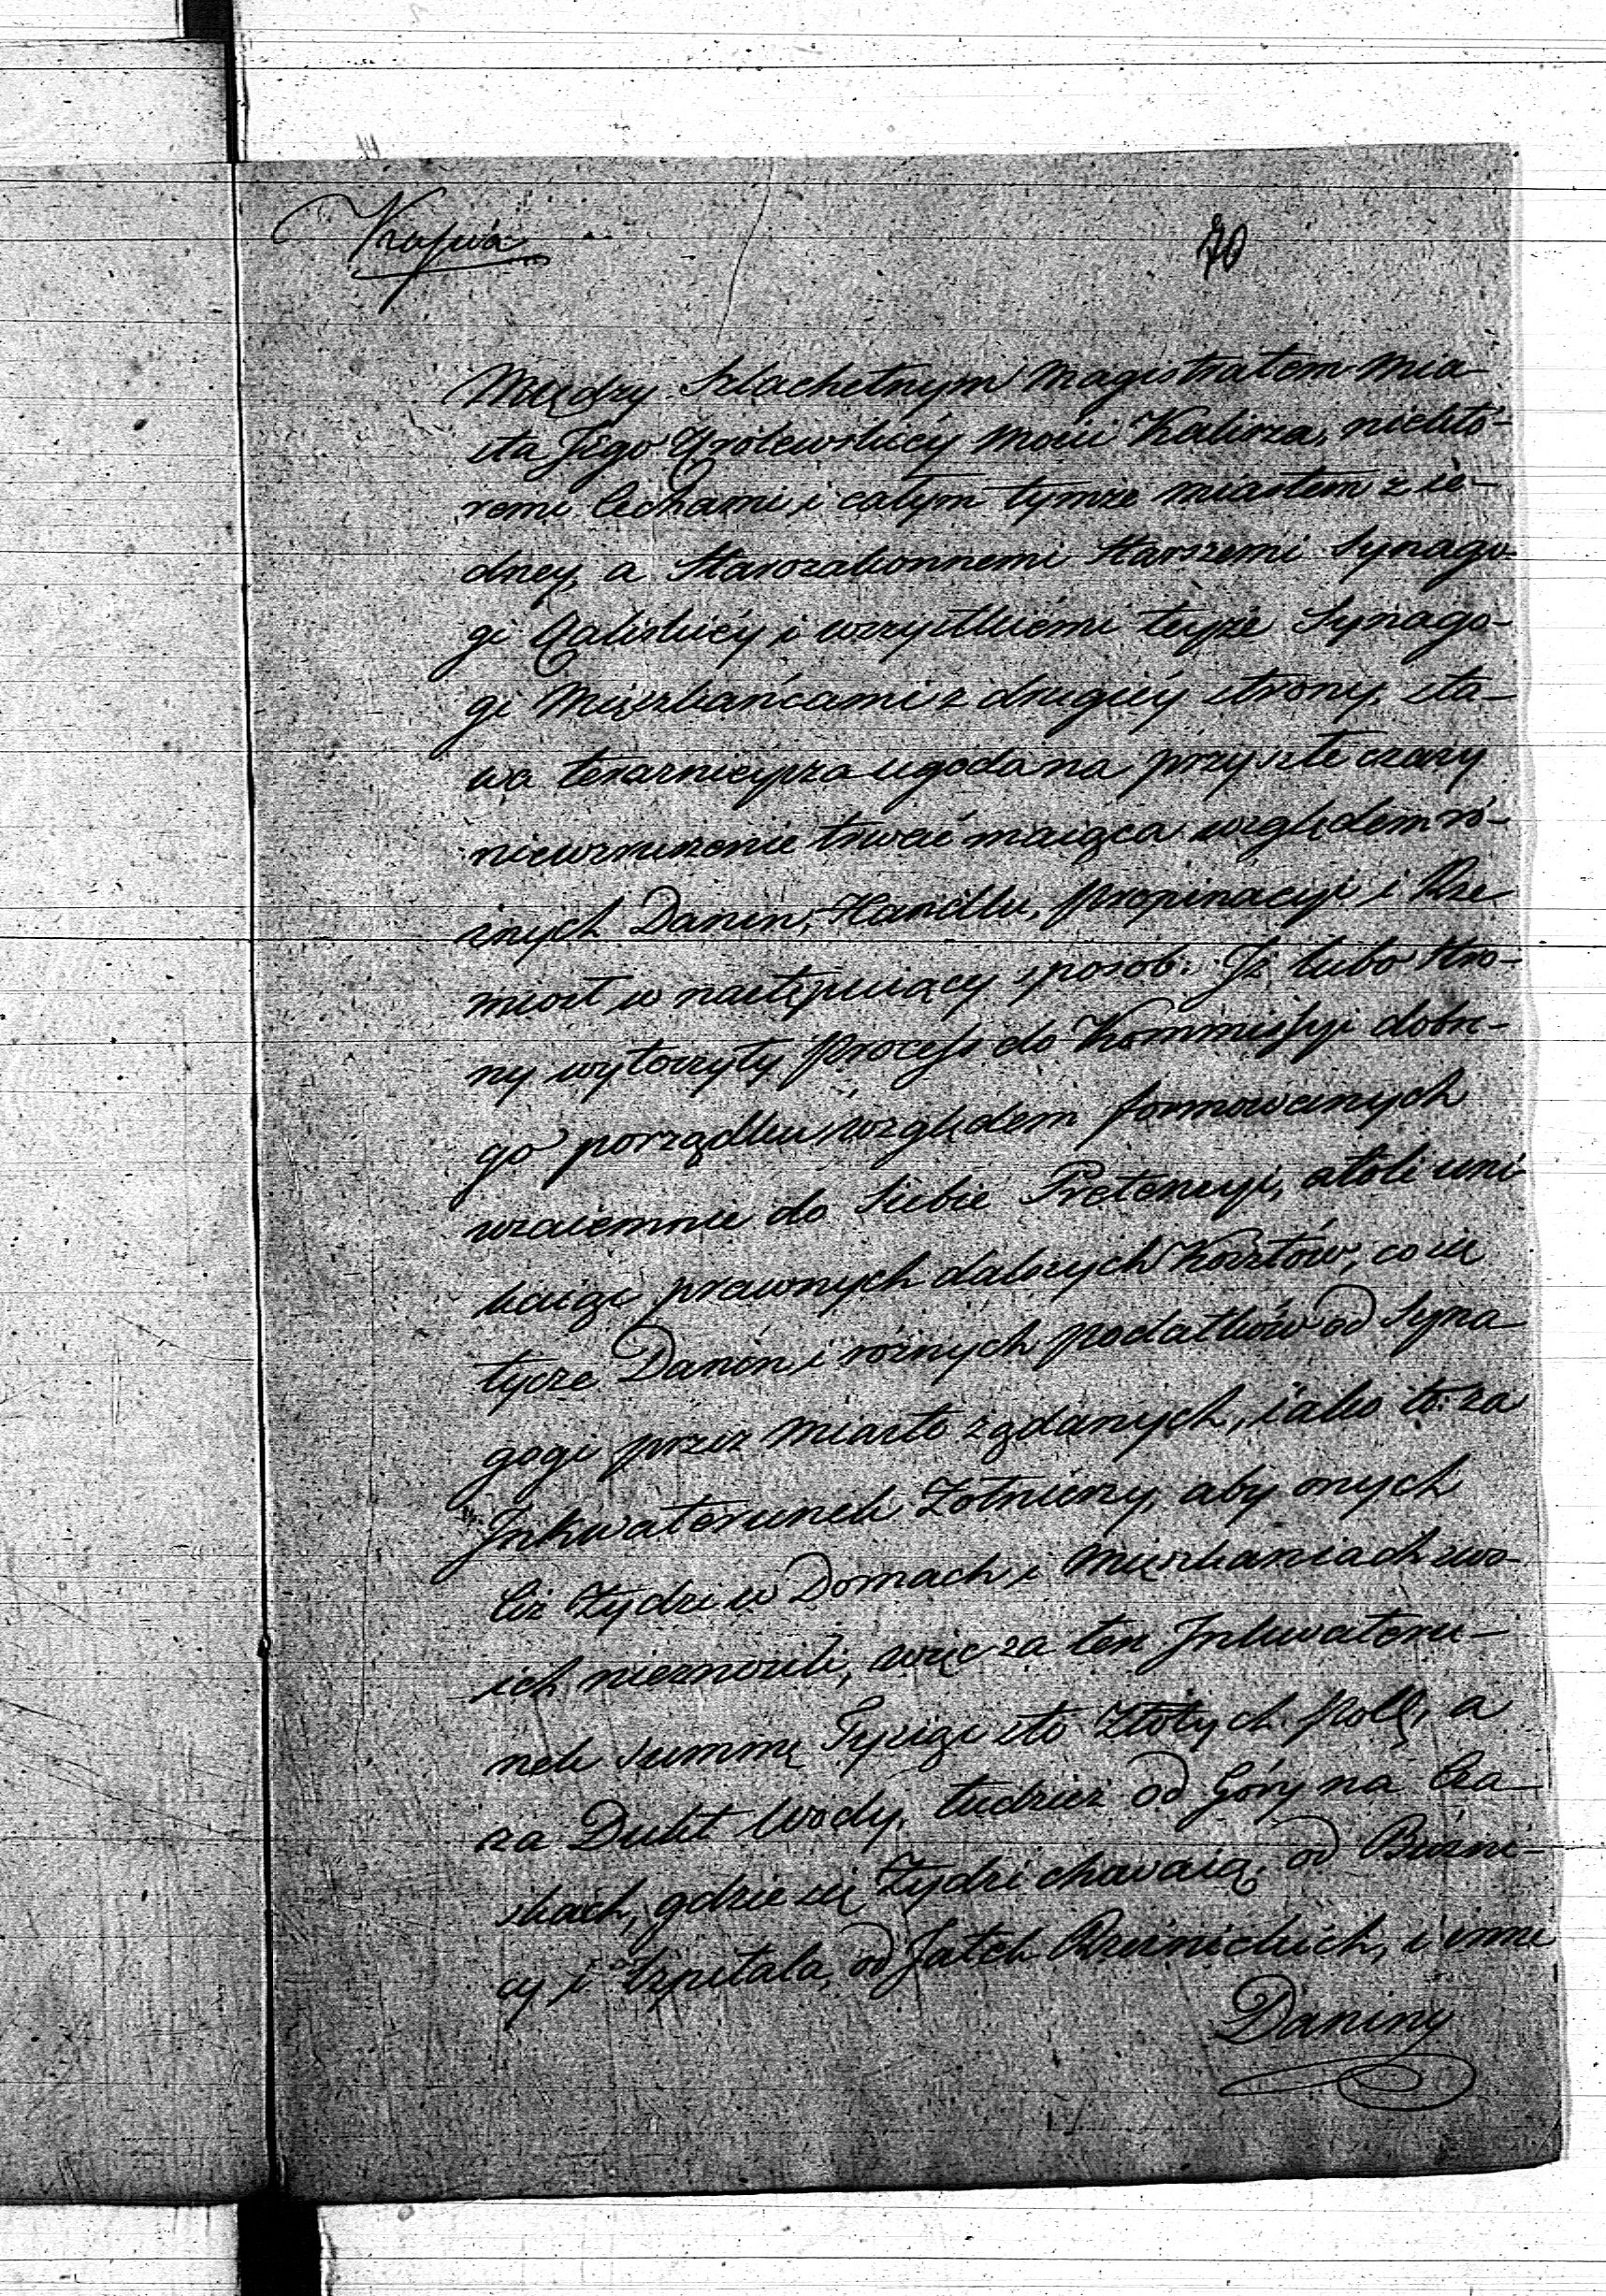 Kopia
70
Między Szlachetnym Magistratem Mia-
sta Jego Królewskiéy Mości Kalisza, niektó-
remi Cechami i całym tymże miastem z ie-
dney, a Starozakonnemi Starszemi Synago-
gi Kaliskiéy i wszystkiémi teyże Synago-
gi Mięszkańcami z drugiéy strony, sta-
wa teraznieysza ugoda na przyszłe czasy
niewzruszenie trwać maiąca względem ró-
żnych Danin, Handlu, propinacyi i Rze-
miosł w następuiący sposob: Jż lubo stro-
ny wytoczyły Process do Kommissyi dobre-
go porządku względem formowanych
wzaiemnie do Siebie Pretensyi, atoli uni-
kaiąc prawnych dalszych Kosztów, co się
tycze Danin i rożnych podatków od Syna-
gogi przez Miasto żądanych, iako to: za
Jnkwaterunek Żołnierzy, aby onych
ciż Żydzi w Domach i Mięszkaniach swo-
ich nieznosili, więc za ten Jnkwateru-
nek summę Tysiąc sto Złotych pols, a
za Dukt Wody, tudzież od Góry na Cza-
skach, gdzie się Żydzi chowaią, od Bużni-
cy i Szpitala, od Jatek Rzeźnickich, i inne
Daniny